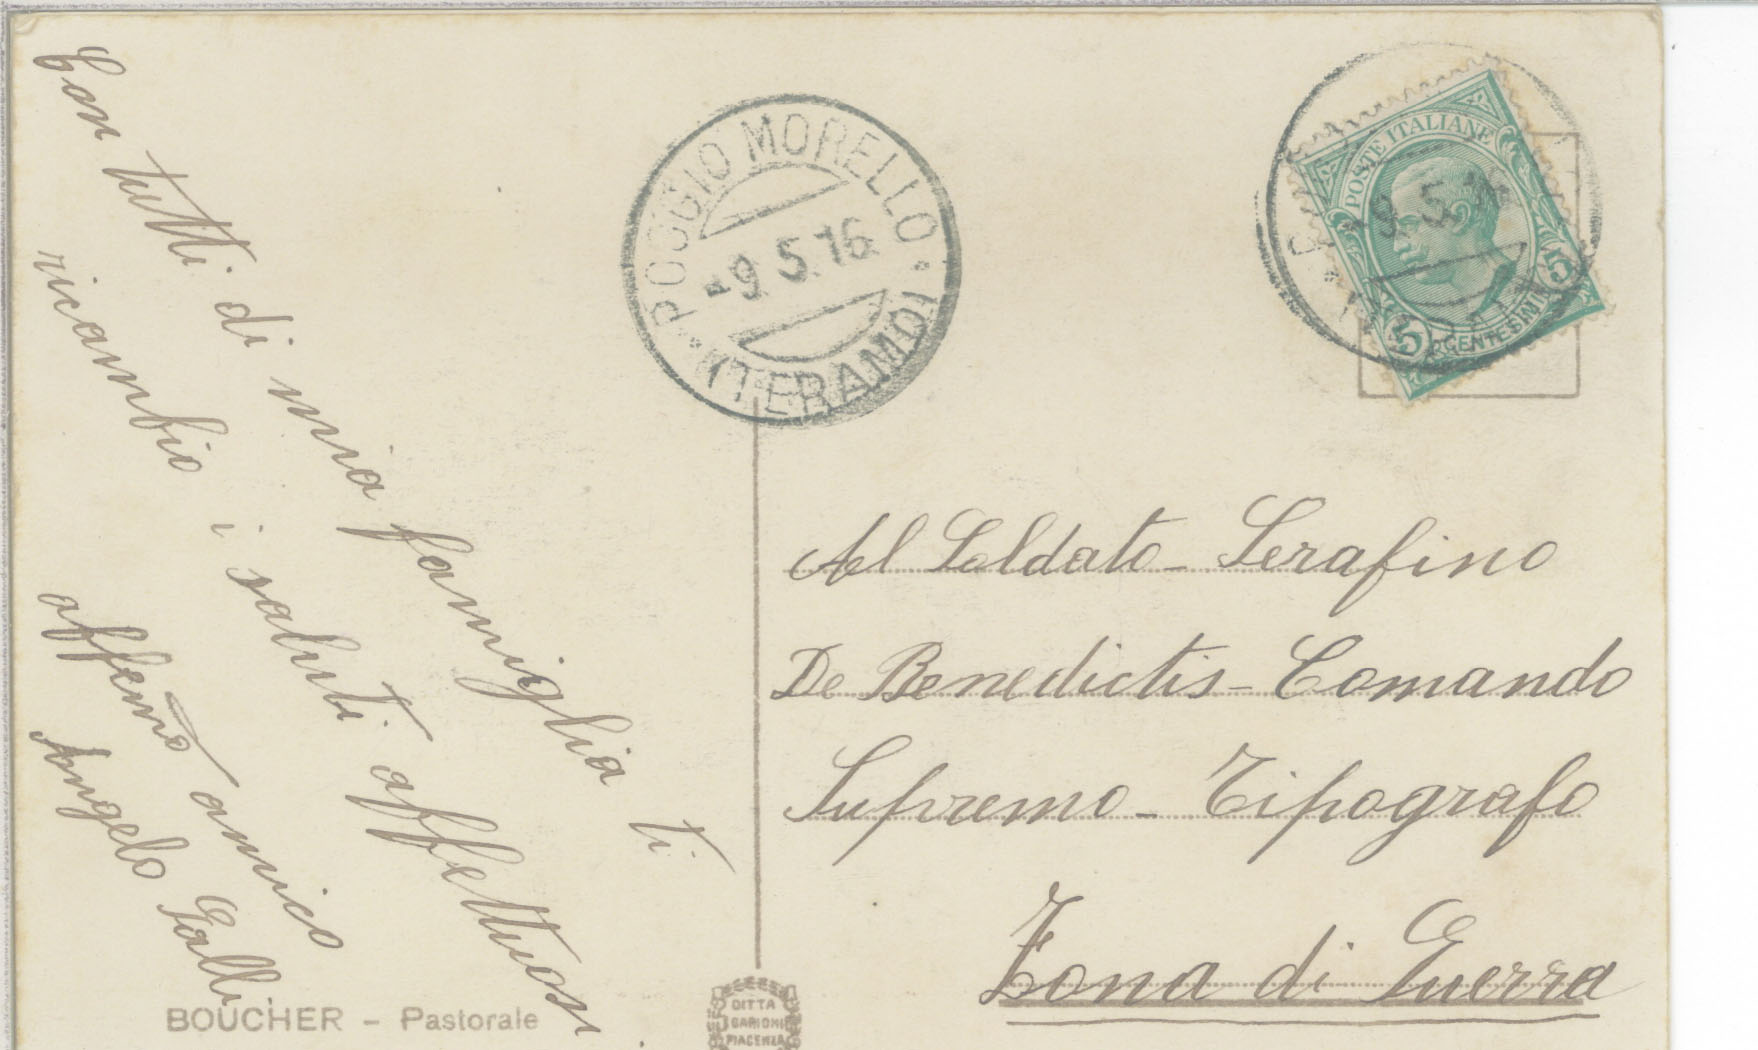 Con tutti di mia famiglia ti
ricambio i saluti affettuosi
affem̃o amico
Angelo Galli
BOUCHER - Pastorale
DITTA
GARIONI
PIACENZA
POGGIO MORELLO
-9.5.16
(TERAMO)
POSTE ITALIANE
-9.5.16
5 CENTESIMI 5
Al Soldato - Serafino
De Benedictis - Comando
Supremo - Tipografo
Zona di Guerra